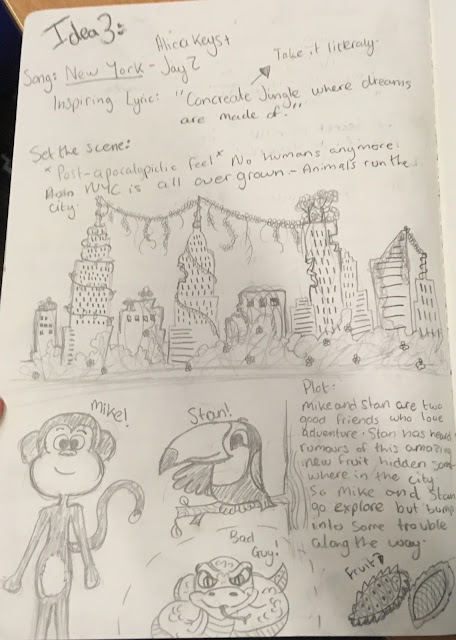 Idea 3:
Alica Keys +
Song: New York - Jay Z
Take it literaly.
Inspiring Lyric: "Concreate Jungle where dreams
are made of."
Set the scene:
*Post-apocaliptic feel* No humans anymore.
NYC is all overgrown - Animals run the
city.
Mike!
Stan!
Bad
Guy!
Plot:
Mike and Stan are two
good friends who love
adventure. Stan has heard
rumours of this amazing
new fruit hidden som
where in the city
So Mike and Stan
go explore but bump
into some trouble
along the way.
Fruit